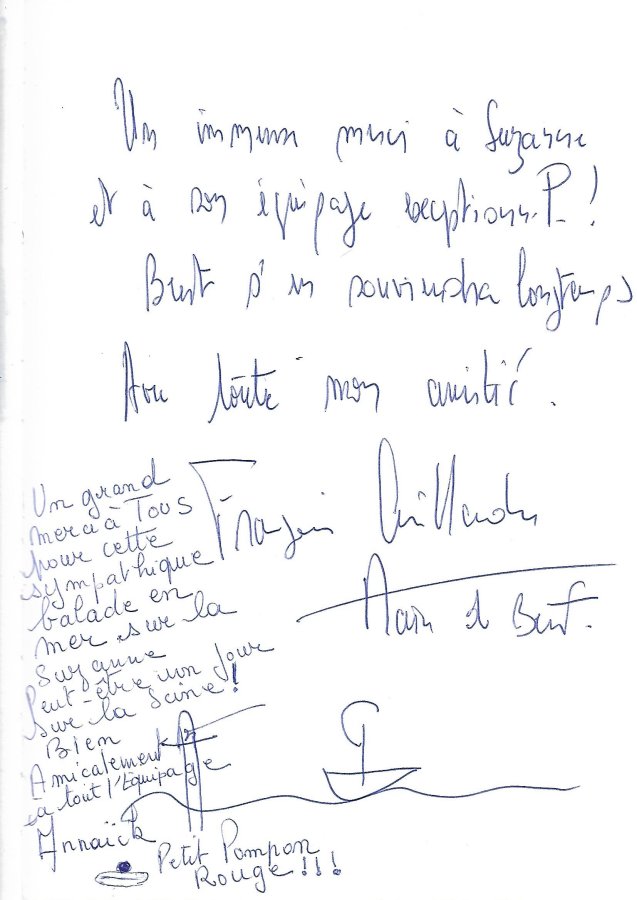 Un immense merci à Suzanne
et à son équipage exceptionnel !
Brest s'en souviendra longtemps
Avec toute mon amitié.
François Cuillandre
Maire de Brest.
Un grand
merci à Tous
pour cette
sympathique
balade en
mer sur la
Suzanne
Peut-être un jour
sur la Seine !
Bien
Amicalement
à tout l'Equipage
Annaïck
Petit Pompon
Rouge !!!